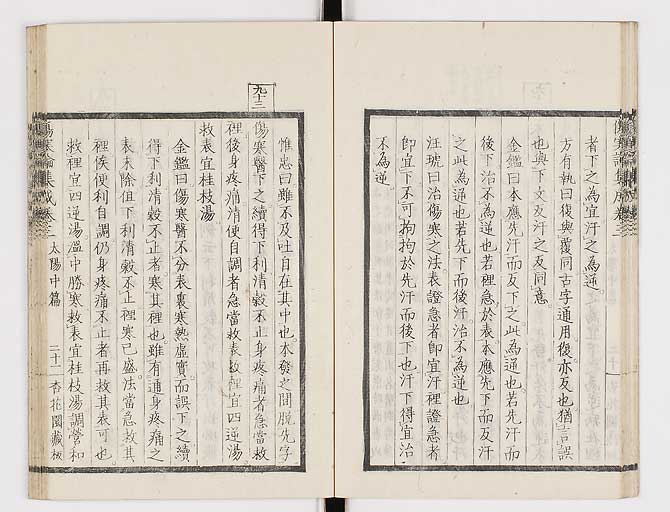 者下之為宜汗之為逆
方有執曰復與覆同古字通用復亦反也猶言誤
也與下文反汗之反同意
金鑑曰本應先汗而反下之此為逆也若先汗而
後下治不為逆也若裡急於表本應先下而反汗
之此為逆也若先下而後汗治不為逆也
汪琥曰治傷寒之法表證急者即宜汗裡證急者
即宜下不可拘拘於先汗而後下也汗下得宜治
不為逆
九十三
惟忠曰雖不及吐自在其中也本發之間脫先字
傷寒醫下之續得下利清穀不止身疼痛者急當救
裡後身疼痛清便自調者急當救表救裡宜四逆湯
救表宜桂枝湯
金鑑曰傷寒醫不分表裏寒熱虛實而誤下之續
得下利清穀不止者寒其裡也雖有通身疼痛之
表未除但下利清穀不止裡寒已盛法當急救其
裡俟便利自調仍身疼痛不止者再救其表可也
救裡宜四逆湯溫中勝寒救表宜桂枝湯調營和
傷寒論集成卷三 太陽中篇 二十一 杏花園藏板